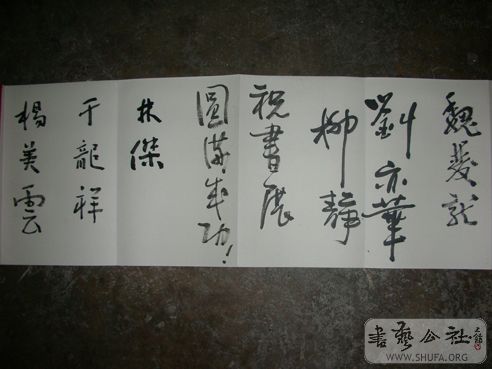 魏发龙
劉亦華
柳靜
祝書展
圓满成功!
林傑
于龍祥
楊美雲
書藝公社
WWW.SHUFA.ORG